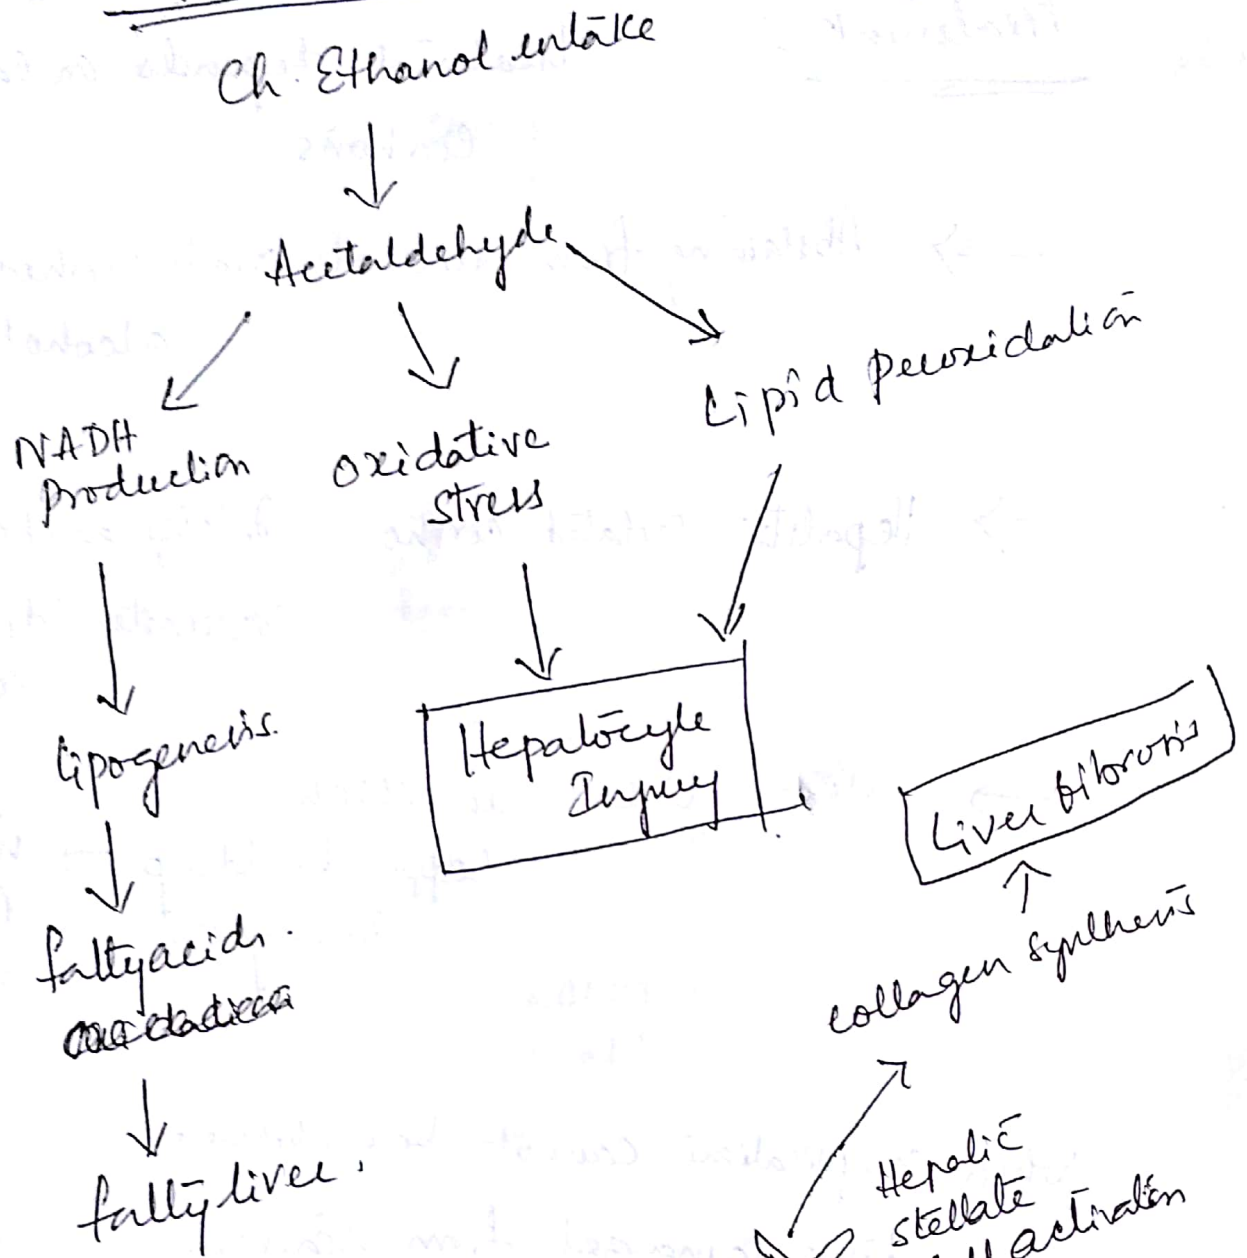 Ch. Ethanol intake
Acetaldehyde
NADH
Production
oxidative
stress
Lipid Peroxidation
Lipogenesis.
Hepatocyte
Injury
Liver fibrosis
fattyacids.
collagen synthesis
fattyliver.
Hepatic
stellate
activation